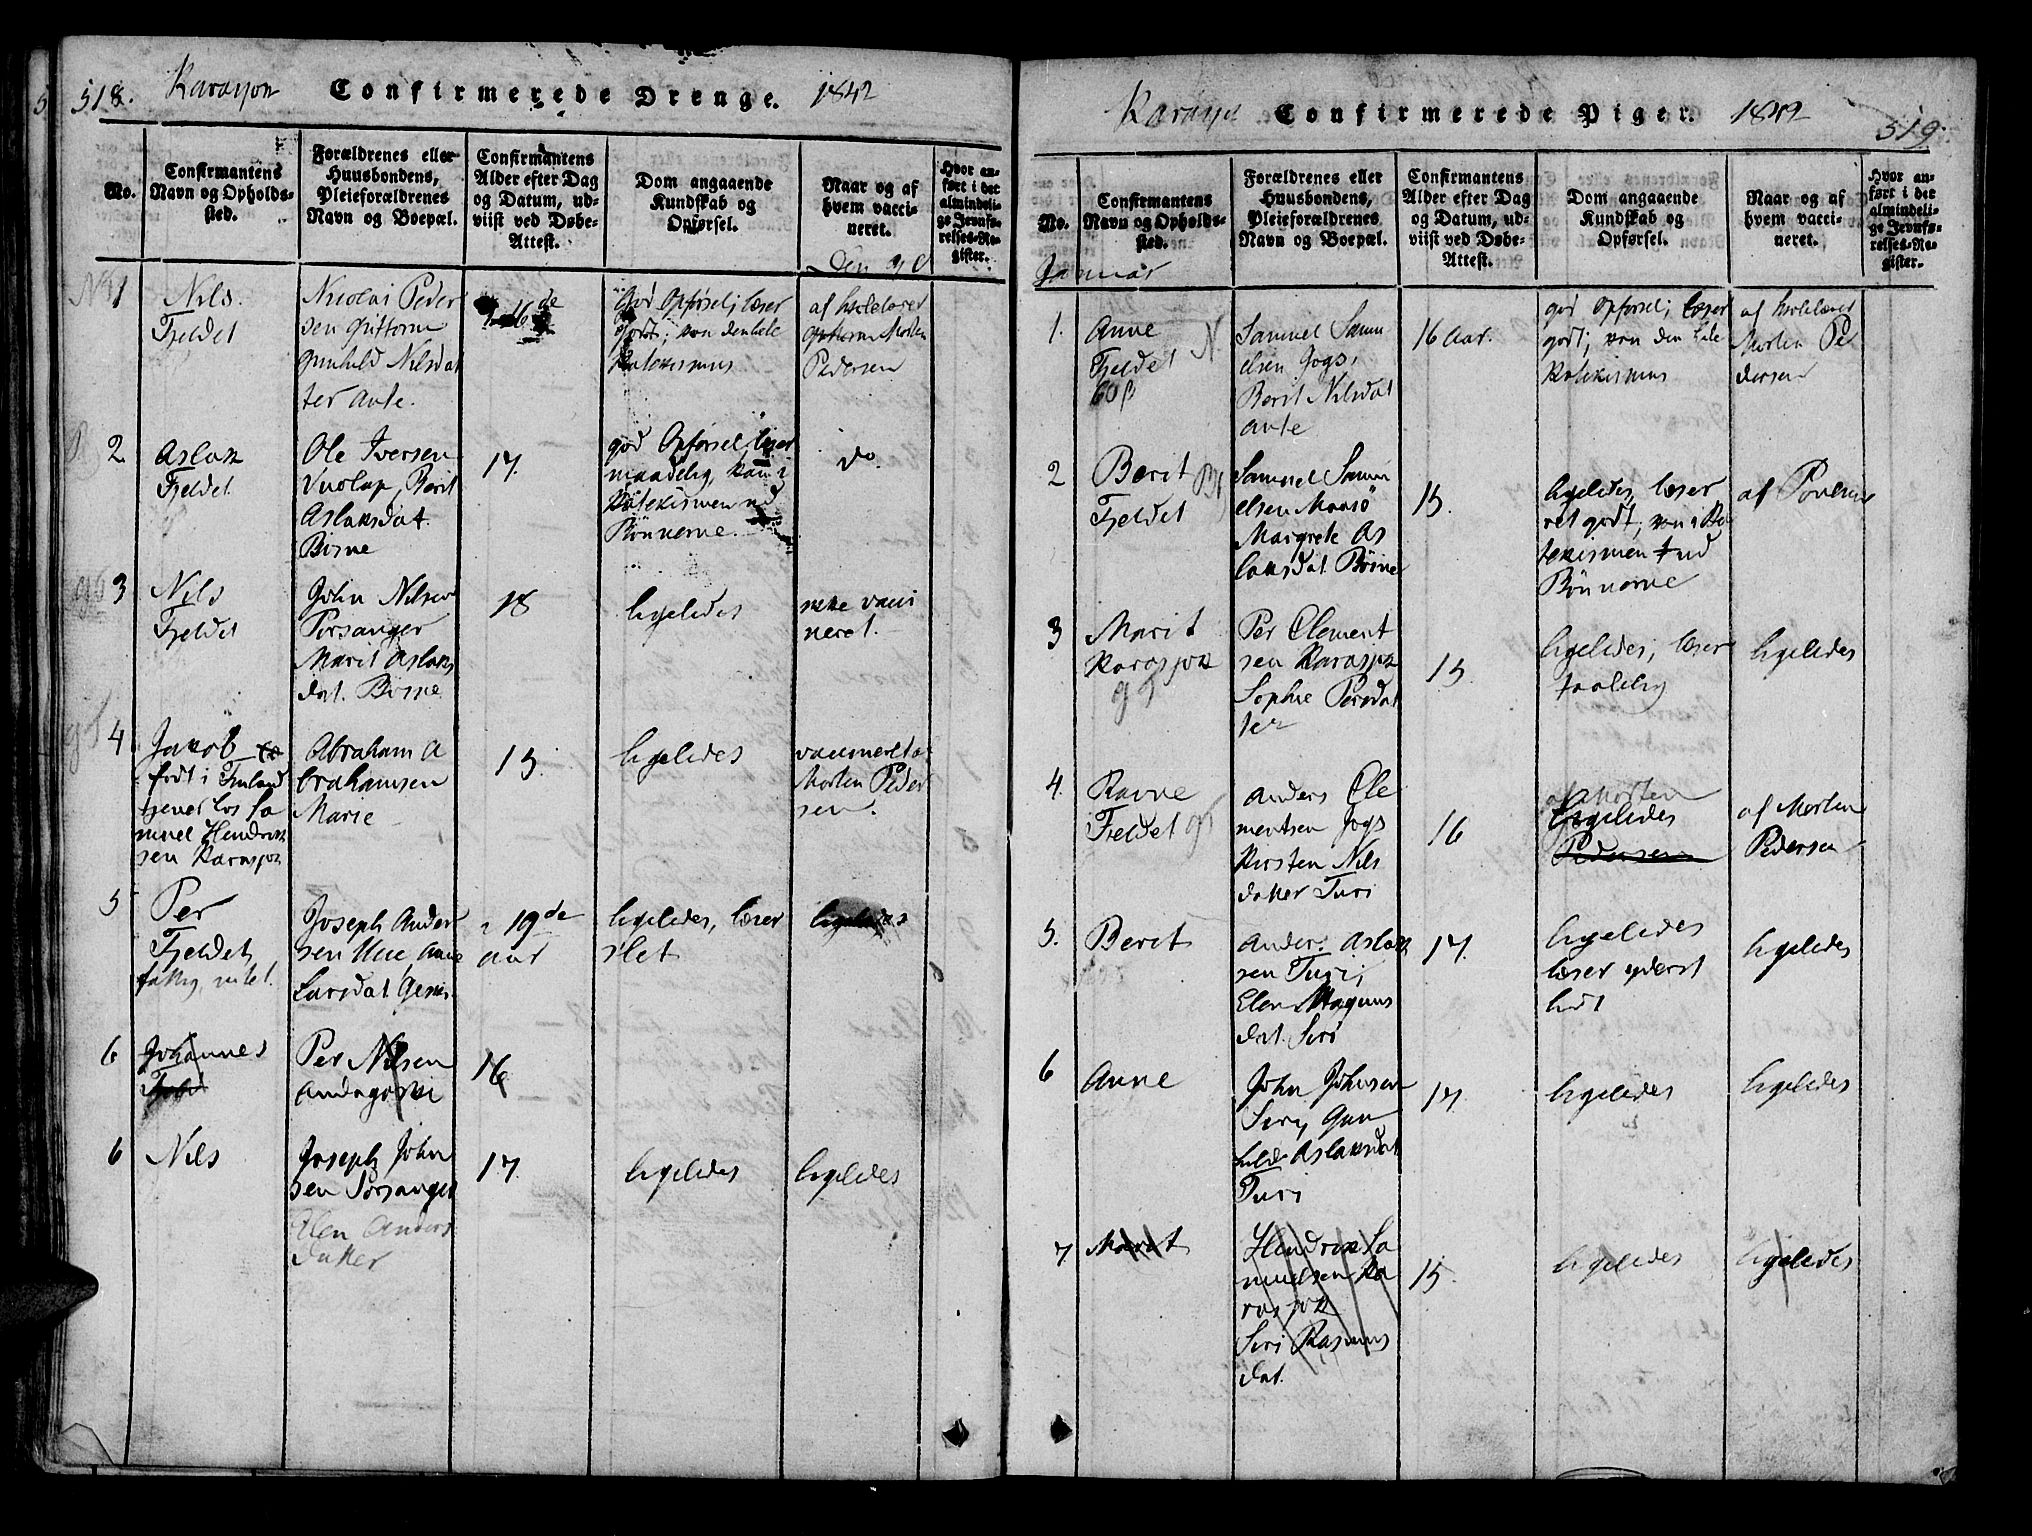 518.
Karasjok
Confirmerede Drenge.
1842
No.
Confirmantens
Navn og Opholds-
sted.
Forældrenes eller
Huusbondens,
Pleieforældrenes
Navn og Boepæl.
Confirmantens
Alder efter Dag
og Datum, ud-
viist ved Døbe-
Attest.
Dom angaaende
Kundskab og
Opførsel.
Naar og af
hvem vacci-
neret.
Hvor an-
ført i det
almindeli-
ge Jevnfø-
relses-Re-
gister.
1
Nils
Fjeldet
Nicolai Peder
sen
Gunhild Nilsdat
ter Ante.
16de
God Opførsel; læser
godt; kan den hele
Katekismus
af Skolelærer
Morten
Pedersen
2
Aslak
Fjeldet
Ole Iversen
Vuolap, Berit
Aslaksdat.
Børne
17.
god Opførsel, læser
maadelig, kan i
Katekismen ud
Bønnerne.
do.
3
Nils
Fjeldet
John Nilsen
Porsanger
Marit Aslaks
dat. Børne
18
ligeledes
ikke vacci
neret.
4
Jakob
født i Finland
tjener hos Sa
muel Henrik
sen Karasjok
Abraham A
brahamsen
Marie
15
ligeledes
vaccineret af
Morten Peder
sen.
5
Per
Fjeldet,
Joseph Ander
sen Anne
Larsdat
19de
aar
ligeledes, læser
slet
ligeledes
6
Johannes
Per Nilsen
16
6
Nils
Joseph John
sen Porsanger
Elen Anders
datter
17.
ligeledes
ligeledes
Karasjok
Confirmerede Piger.
1842
519.
No.
Confirmantens
Navn og Opholds-
sted.
Forældrenes eller
Huusbondens,
Pleieforældrenes
Navn og Boepæl.
Confirmantens
Alder efter Dag
og Datum, ud-
viist ved Døbe-
Attest.
Dom angaaende
Kundskab og
Opførsel.
Naar og af
hvem vacci-
neret.
Hvor an-
ført i det
almindeli-
ge Jevnfø-
relses-Re-
gister.
Januar
1.
Anne
Fjeldet
Samuel Samu
elsen Jogs,
Berit Nilsdat
Ante
16 Aar.
god Opførsel; læser
godt; kan den hele
Katekismus
af Skolelærer
Morten Pe
dersen
2
Berit
Fjeldet
Samuel Samu
elsen Maasø
Margrete As
laksdat. Børne
15.
ligeledes, læser
ret godt; kan i Ka
tekismen ud
Bønnerne
af
3
Marit
Karasjok
Per Clement
sen Karasjok
Sophie Persdat
ter
15.
ligeledes; læser
taalelig
ligeledes
4.
Ravne
Fjeldet
Anders Cle
mentsen Jogs
Kirsten Nils
datter Turi
16
ligeledes
Pedersen
af Morten
Pedersen
5.
Berit
Anders Aslak
sen Turi;
Elen Magnus
dat. Siri
17.
ligeledes
læser yderst
lidt
ligeledes
6
Anne
John Johnsen
Siri, Gun
hilde Aslaksdat
Turi
17.
ligeledes
ligeledes
7
Marit
Hendrik Sa
muelsen Ka
rasjok
Siri Rasmus
dat.
15.
ligeledes
ligeledes